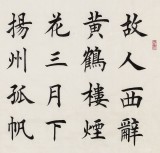 故人西辭
黃鶴樓煙
花三月下
揚州孤帆